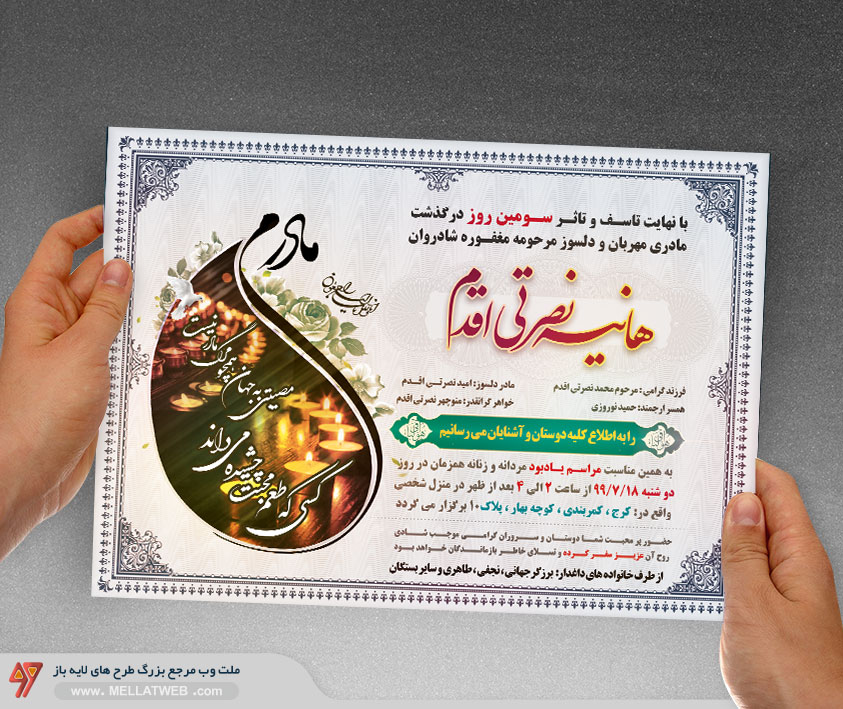 با نهایت تاسف و تاثر سومین روز درگذشت
مادری مهربان و دلسوز مرحومه مغفوره شادروان
هانیه نصرتی اقدم
فرزند گرامی : مرحوم محمد نصرتی اقدم
مادر دلسوز: امید نصرتی اقدم
همسر ارجمند: حمید نوروزی
خواهر گرانقدر: منوچهر نصرتی اقدم
را به اطلاع کلیه دوستان و آشنایان می رسانیم
به همین مناسبت مراسم یادبود مردانه و زنانه همزمان در روز
دو شنبه ۹۹/۷/۱۸ از ساعت ۲ الی ۴ بعد از ظهر در منزل شخصی
واقع در: کرج ، کمربندی ، کوچه بهار ، پلاک۱۰ برگزار می گردد
حضور پر محبت شما دوستان و سروران گرامی موجب شادی
روح آن عزیز سفر کرده و تسلای خاطر بازماندگان خواهد بود
از طرف خانواده های داغدار: برزگر جهانی ، نجفی ، طاهری و سایر بستگان
مادرم
مصیبتی به جهان همچو مرگ مادر نیست
کسی که طعم محبت چشیده می داند
ملت وب مرجع بزرگ طرح های لایه باز
www. MELLATWEB .com